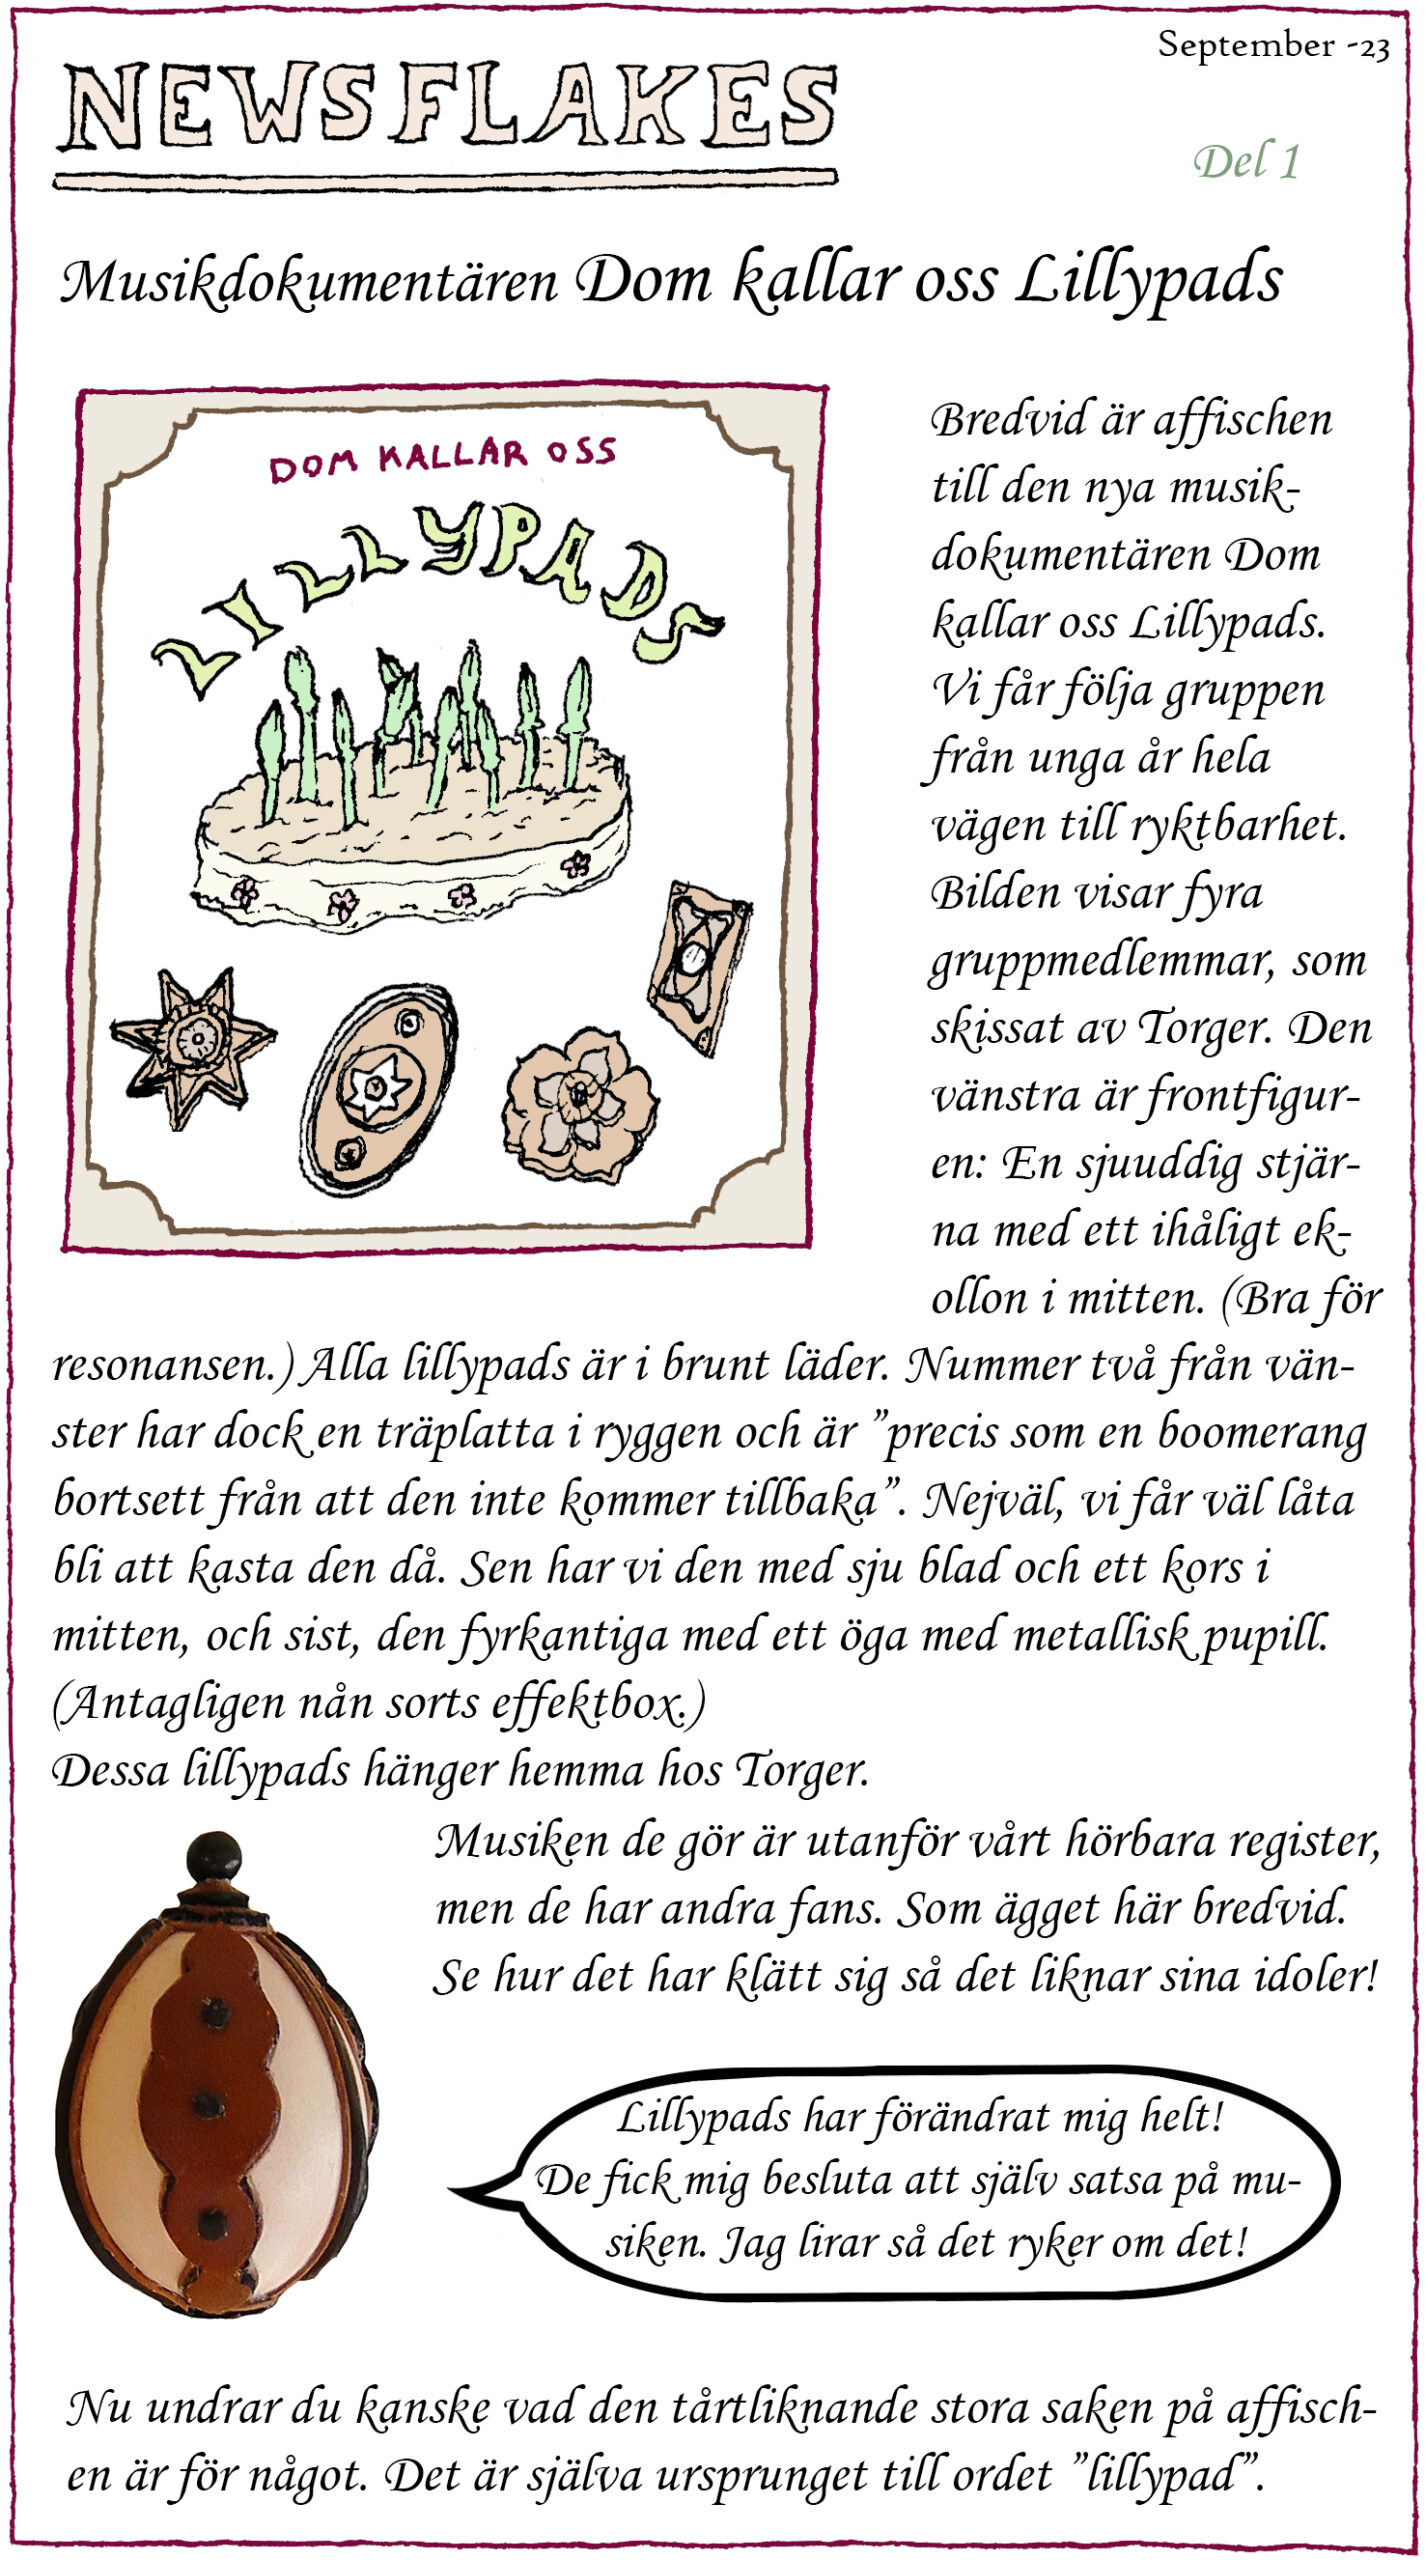 September -23
NEWSFLAKES
Del 1
Musikdokumentären Dom kallar oss Lillypads
DOM KALLAR OSS
LILLYPADS
Bredvid är affischen
till den nya musik-
dokumentären Dom
kallar oss Lillypads.
Vi får följa gruppen
från unga år hela
vägen till ryktbarhet.
Bilden visar fyra
gruppmedlemmar, som
skissat av Torger. Den
vänstra är frontfigur-
en: En sjuuddig stjär-
na med ett ihåligt ek-
ollon i mitten. (Bra för
resonansen.) Alla lillypads är i brunt läder. Nummer två från vän-
ster har dock en träplatta i ryggen och är ”precis som en boomerang
bortsett från att den inte kommer tillbaka”. Nejväl, vi får väl låta
bli att kasta den då. Sen har vi den med sju blad och ett kors i
mitten, och sist, den fyrkantiga med ett öga med metallisk pupill.
(Antagligen nån sorts effektbox.)
Dessa lillypads hänger hemma hos Torger.
Musiken de gör är utanför vårt hörbara register,
men de har andra fans. Som ägget här bredvid.
Se hur det har klätt sig så det liknar sina idoler!
Lillypads har förändrat mig helt!
De fick mig besluta att själv satsa på mu-
siken. Jag lirar så det ryker om det!
Nu undrar du kanske vad den tårtliknande stora saken på affisch-
en är för något. Det är själva ursprunget till ordet ”lillypad”.